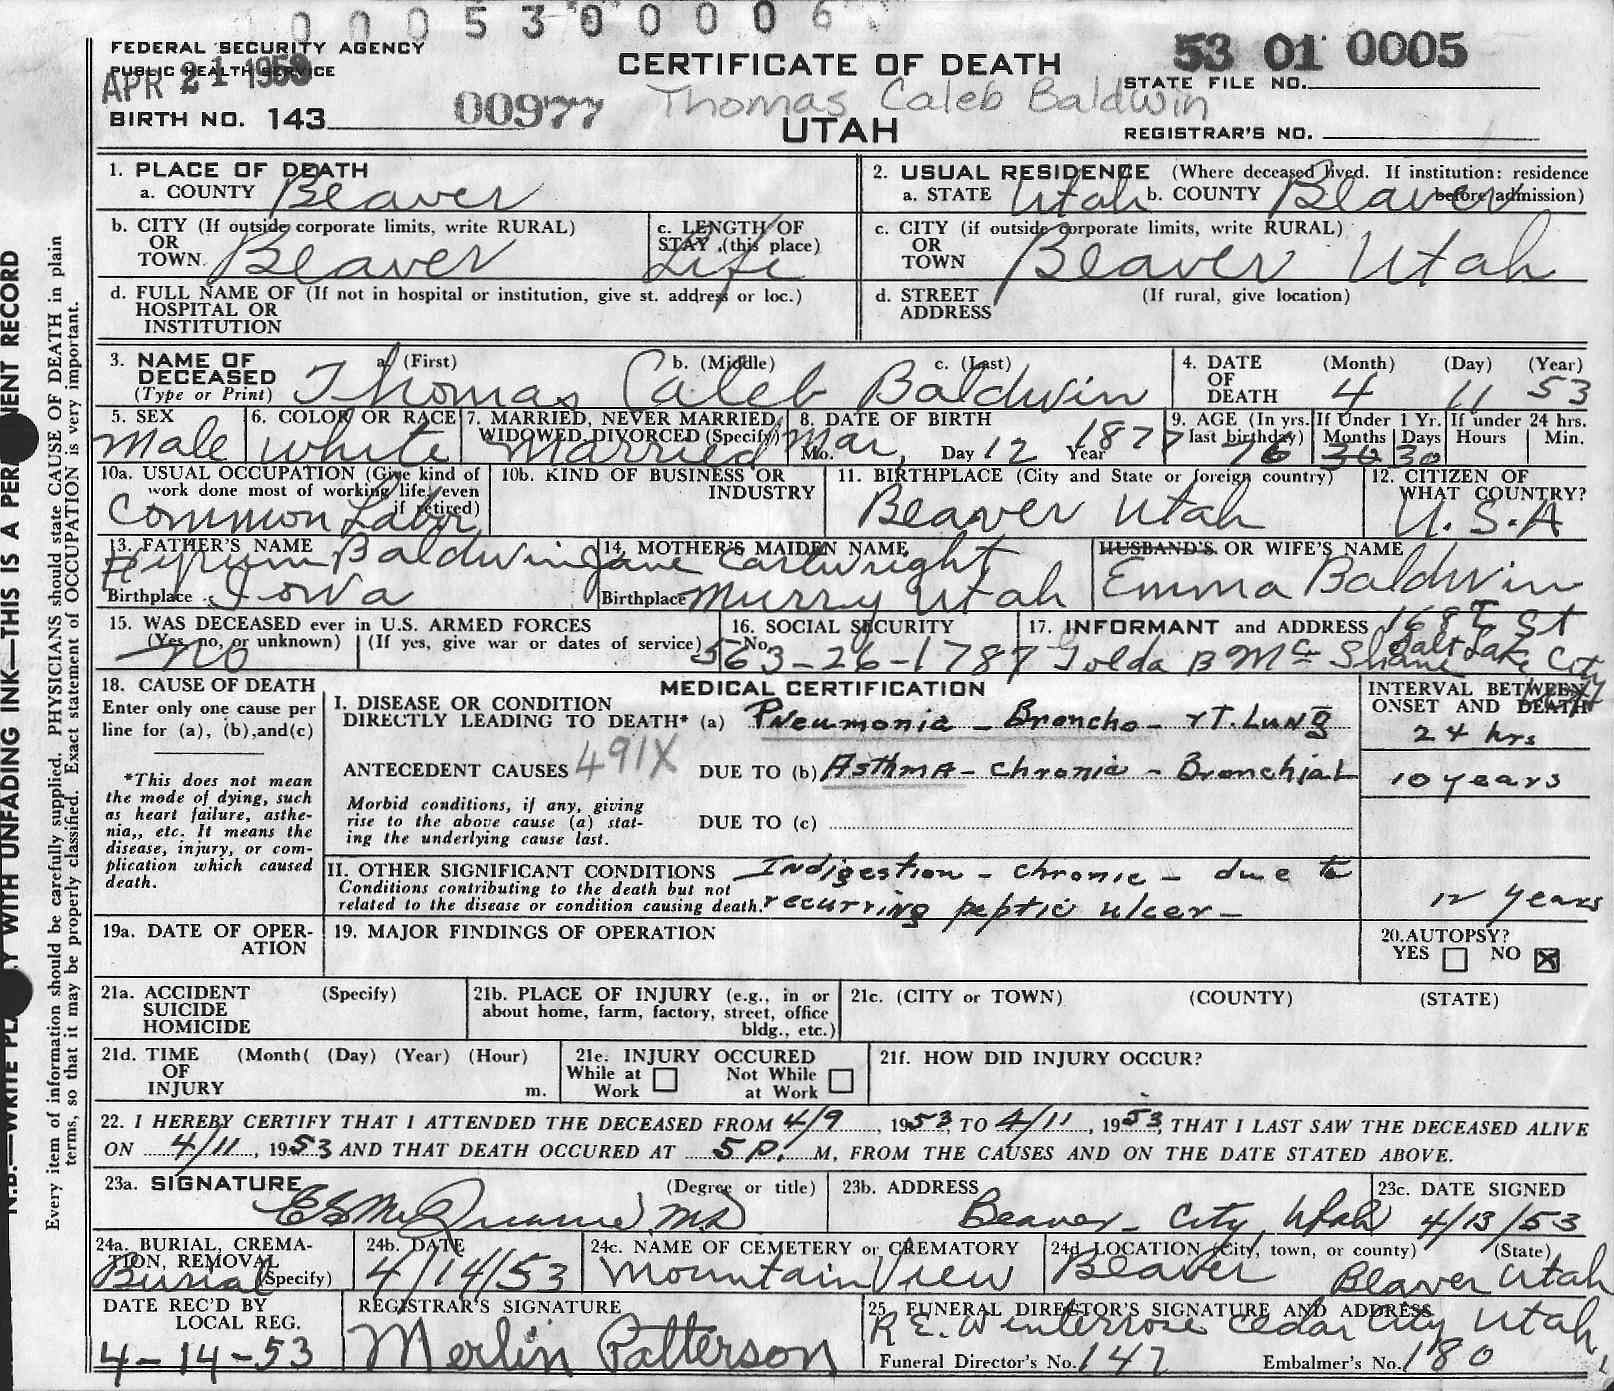 0005300006
FEDERAL SECURITY AGENCY
PUBLIC HEALTH SERVICE
APR 21 1953
BIRTH NO. 143
00977
CERTIFICATE OF DEATH
Thomas Caleb Baldwin
UTAH
53 01 0005
STATE FILE NO.
REGISTRAR'S NO.
1. PLACE OF DEATH
a. COUNTY Beaver
2. USUAL RESIDENCE (Where deceased lived. If institution: residence
a. STATE Utah b. COUNTY Beaver before admission)
b. CITY (If outside corporate limits, write RURAL)
OR
TOWN. Beaver
c. LENGTH OF
STAY (this place)
Life
c. CITY (if outside corporate limits, write RURAL)
OR
TOWN Beaver Utah
d. FULL NAME OF (If not in hospital or institution, give st. address or loc.)
HOSPITAL OR
INSTITUTION
d. STREET (If rural, give location)
ADDRESS
3. NAME OF a. (First) b. (Middle) c. (Last)
DECEASED Thomas Caleb Baldwin
(Type or Print)
4. DATE (Month) (Day) (Year)
OF
DEATH 4 11 53
5. SEX
Male
6. COLOR OR RACE
White
7. MARRIED, NEVER MARRIED,
WIDOWED, DIVORCED (Specify)
Married
8. DATE OF BIRTH
Mo. Mar. Day 12 Year 1877
9. AGE (In yrs. If Under 1 Yr. If under 24 hrs.
last birthday) Months Days Hours Min.
76 30 30
10a. USUAL OCCUPATION (Give kind of
work done most of working life, even
if retired)
Common Labor
10b. KIND OF BUSINESS OR
INDUSTRY
11. BIRTHPLACE (City and State or foreign country)
Beaver Utah
12. CITIZEN OF
WHAT COUNTRY?
U.S.A
13. FATHER'S NAME
Hyrum Baldwin
Birthplace Iowa
14. MOTHER'S MAIDEN NAME
Jane Cartwright
Birthplace Murry Utah
HUSBAND'S OR WIFE'S NAME
Emma Baldwin
15. WAS DECEASED ever in U.S. ARMED FORCES
(Yes, no, or unknown) (If yes, give war or dates of service)
no
16. SOCIAL SECURITY
No. 563-26-1787
17. INFORMANT and ADDRESS 168 E St
Golda B Mc Shane Salt Lake City
Utah
18. CAUSE OF DEATH
Enter only one cause per
line for (a), (b), and (c)
*This does not mean
the mode of dying, such
as heart failure, asthe-
nia,, etc. It means the
disease, injury, or com-
plication which caused
death.
MEDICAL CERTIFICATION
I. DISEASE OR CONDITION
DIRECTLY LEADING TO DEATH* (a) Pneumonia - Broncho - rt. Lung
ANTECEDENT CAUSES 491X DUE TO (b) Asthma - chronic - Bronchial
Morbid conditions, if any, giving
rise to the above cause (a) stat-
ing the underlying cause last.
DUE TO (c)
II. OTHER SIGNIFICANT CONDITIONS Indigestion - chronic - due to
Conditions contributing to the death but not
related to the disease or condition causing death. recurring peptic ulcer -
INTERVAL BETWEEN
ONSET AND DEATH
24 hrs
10 years
12 years
19a. DATE OF OPER-
ATION
19. MAJOR FINDINGS OF OPERATION
20. AUTOPSY?
YES NO X
21a. ACCIDENT (Specify)
SUICIDE
HOMICIDE
21b. PLACE OF INJURY (e.g., in or
about home, farm, factory, street, office
bldg., etc.)
21c. (CITY or TOWN) (COUNTY) (STATE)
21d. TIME (Month( (Day) (Year) (Hour)
OF
INJURY m.
21e. INJURY OCCURED
While at Not While
Work at Work
21f. HOW DID INJURY OCCUR?
22. I HEREBY CERTIFY THAT I ATTENDED THE DECEASED FROM 4/9, 1953, TO 4/11, 1953, THAT I LAST SAW THE DECEASED ALIVE
ON 4/11, 1953 AND THAT DEATH OCCURED AT 5 P. M, FROM THE CAUSES AND ON THE DATE STATED ABOVE.
23a. SIGNATURE (Degree or title)
M.D.
23b. ADDRESS
Beaver City, Utah
23c. DATE SIGNED
4/13/53
24a. BURIAL, CREMA-
TION, REMOVAL
(Specify)
Burial
24b. DATE
4/14/53
24c. NAME OF CEMETERY or CREMATORY
Mountain View
24d. LOCATION (City, town, or county) (State)
Beaver Beaver Utah
DATE REC'D BY
LOCAL REG.
4-14-53
REGISTRAR'S SIGNATURE
Merlin Patterson
25. FUNERAL DIRECTOR'S SIGNATURE AND ADDRESS
R.E. Winterrose Cedar City Utah,
Funeral Director's No. 147 Embalmer's No. 180
Every item of information should be carefully supplied. PHYSICIANS should state CAUSE OF DEATH in plain
terms, so that it may be properly classified. Exact statement of OCCUPATION is very important.
WITH UNFADING INK—THIS IS A
RECORD